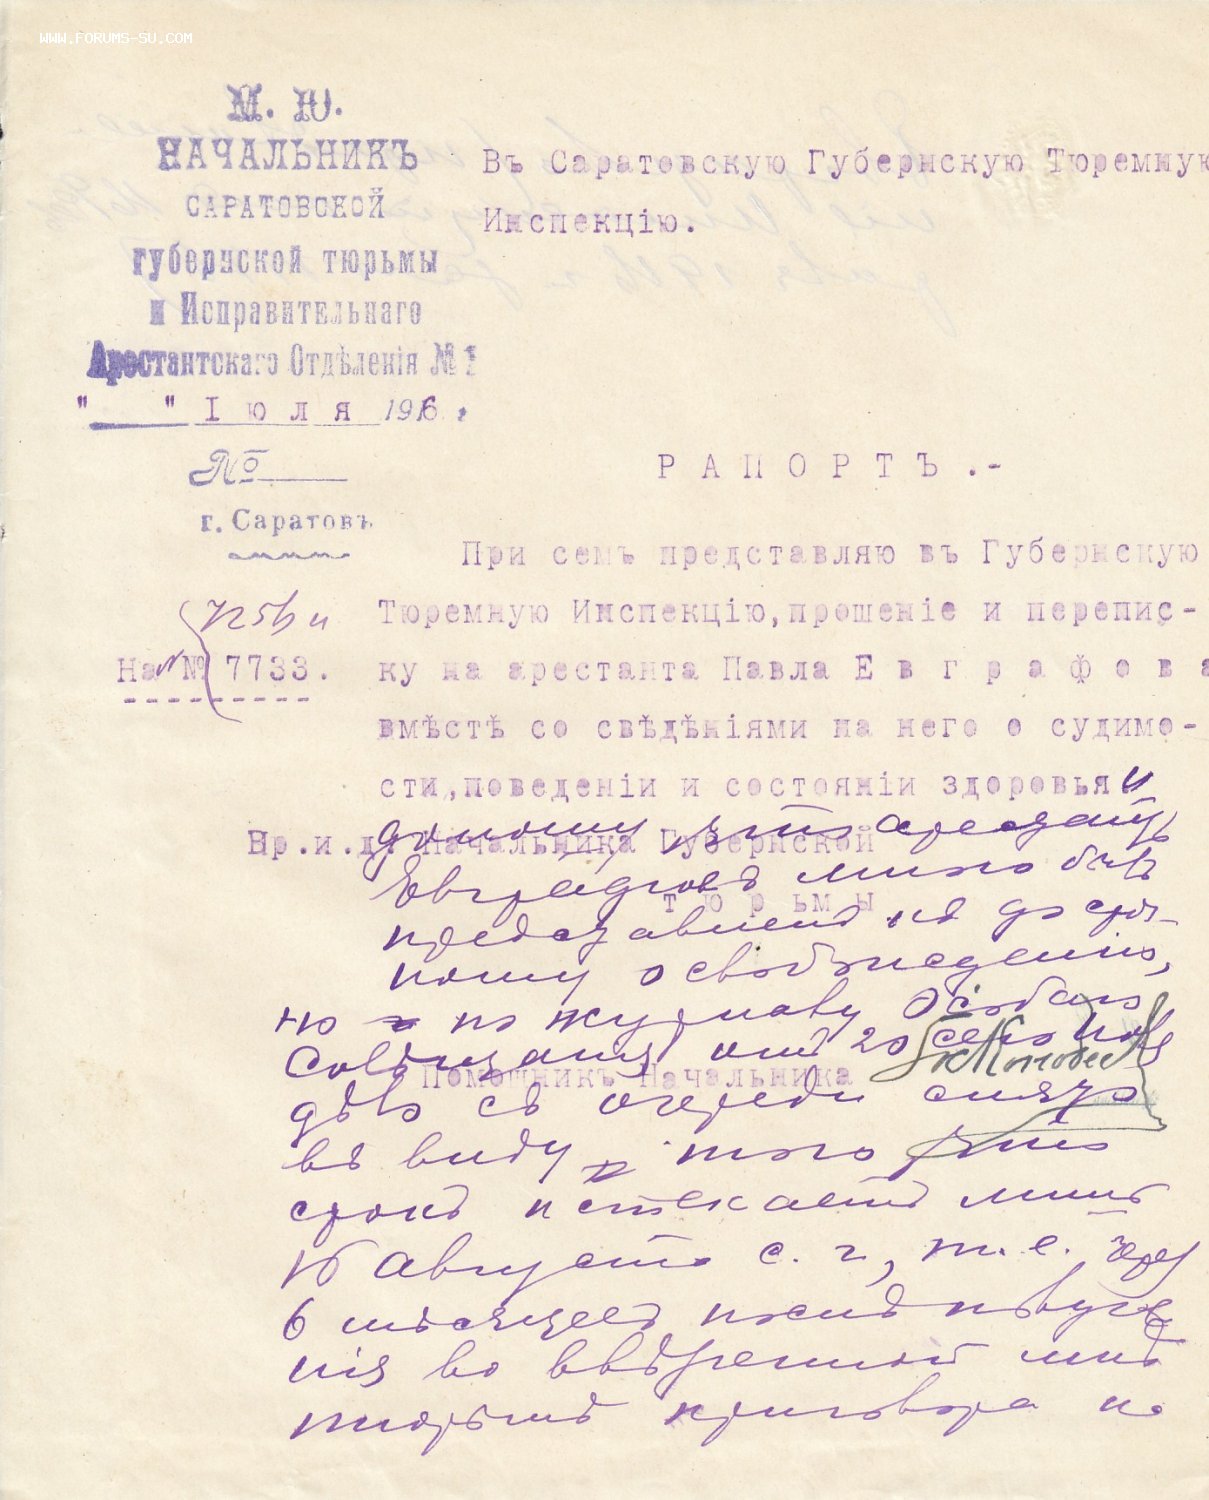 WWW.FORUMS-SU.COM
М. Ю.
НАЧАЛЬНИКЪ
САРАТОВСКОЙ
губернской тюрьмы
и Исправительнаго
Арестантскаго Отдѣленія № 1
"___" Іюля 1916 г.
№
г. Саратовъ
На № 7733.
Въ Саратовскую Губернскую Тюремную
Инспекцію.
РАПОРТЪ.-
При семъ представляю въ Губернскую
Тюремную Инспекцію, прошеніе и перепис-
ку на арестанта Павла Евграфова
вмѣстѣ со свѣдѣніями на него о судимо-
сти, поведеніи и состояніи здоровья и
доношу, что арестантъ
Вр.и.д. Начальника Губернской
Евграфовъ мною былъ
тюрьмы
представленъ къ досроч-
ному освобожденію,
но по журналу Особаго
Совѣщанія отъ 20 сего Іюля
Помощникъ Начальника
дѣло съ очереди снято
въ виду того что
срокъ истекаетъ лишь
16 августа с. г., т. е. чрез
6 мѣсяцевъ послѣ
нія во ввѣренной мнѣ
тюрьмѣ приговора